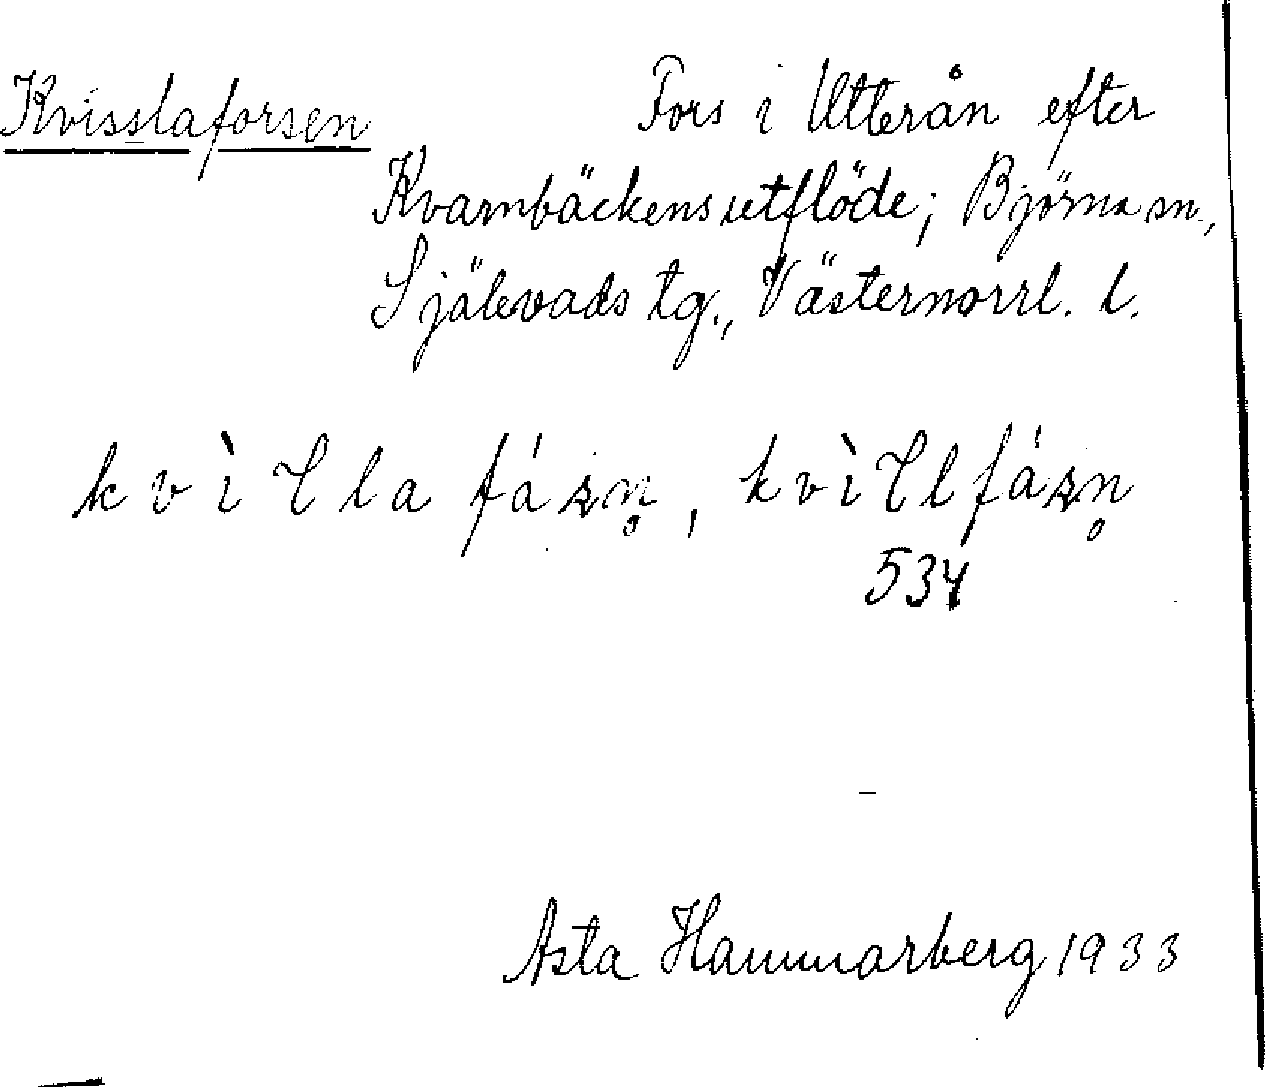 Kvisslaforsen
Fors i Utterån efter
Kvarnbäckens utflöde; Björna sn.,
Själevads tg., Västernorrl. l.
kvìƖla fásn̥, kvìƖlfásn̥
534
Asta Hammarberg 1933